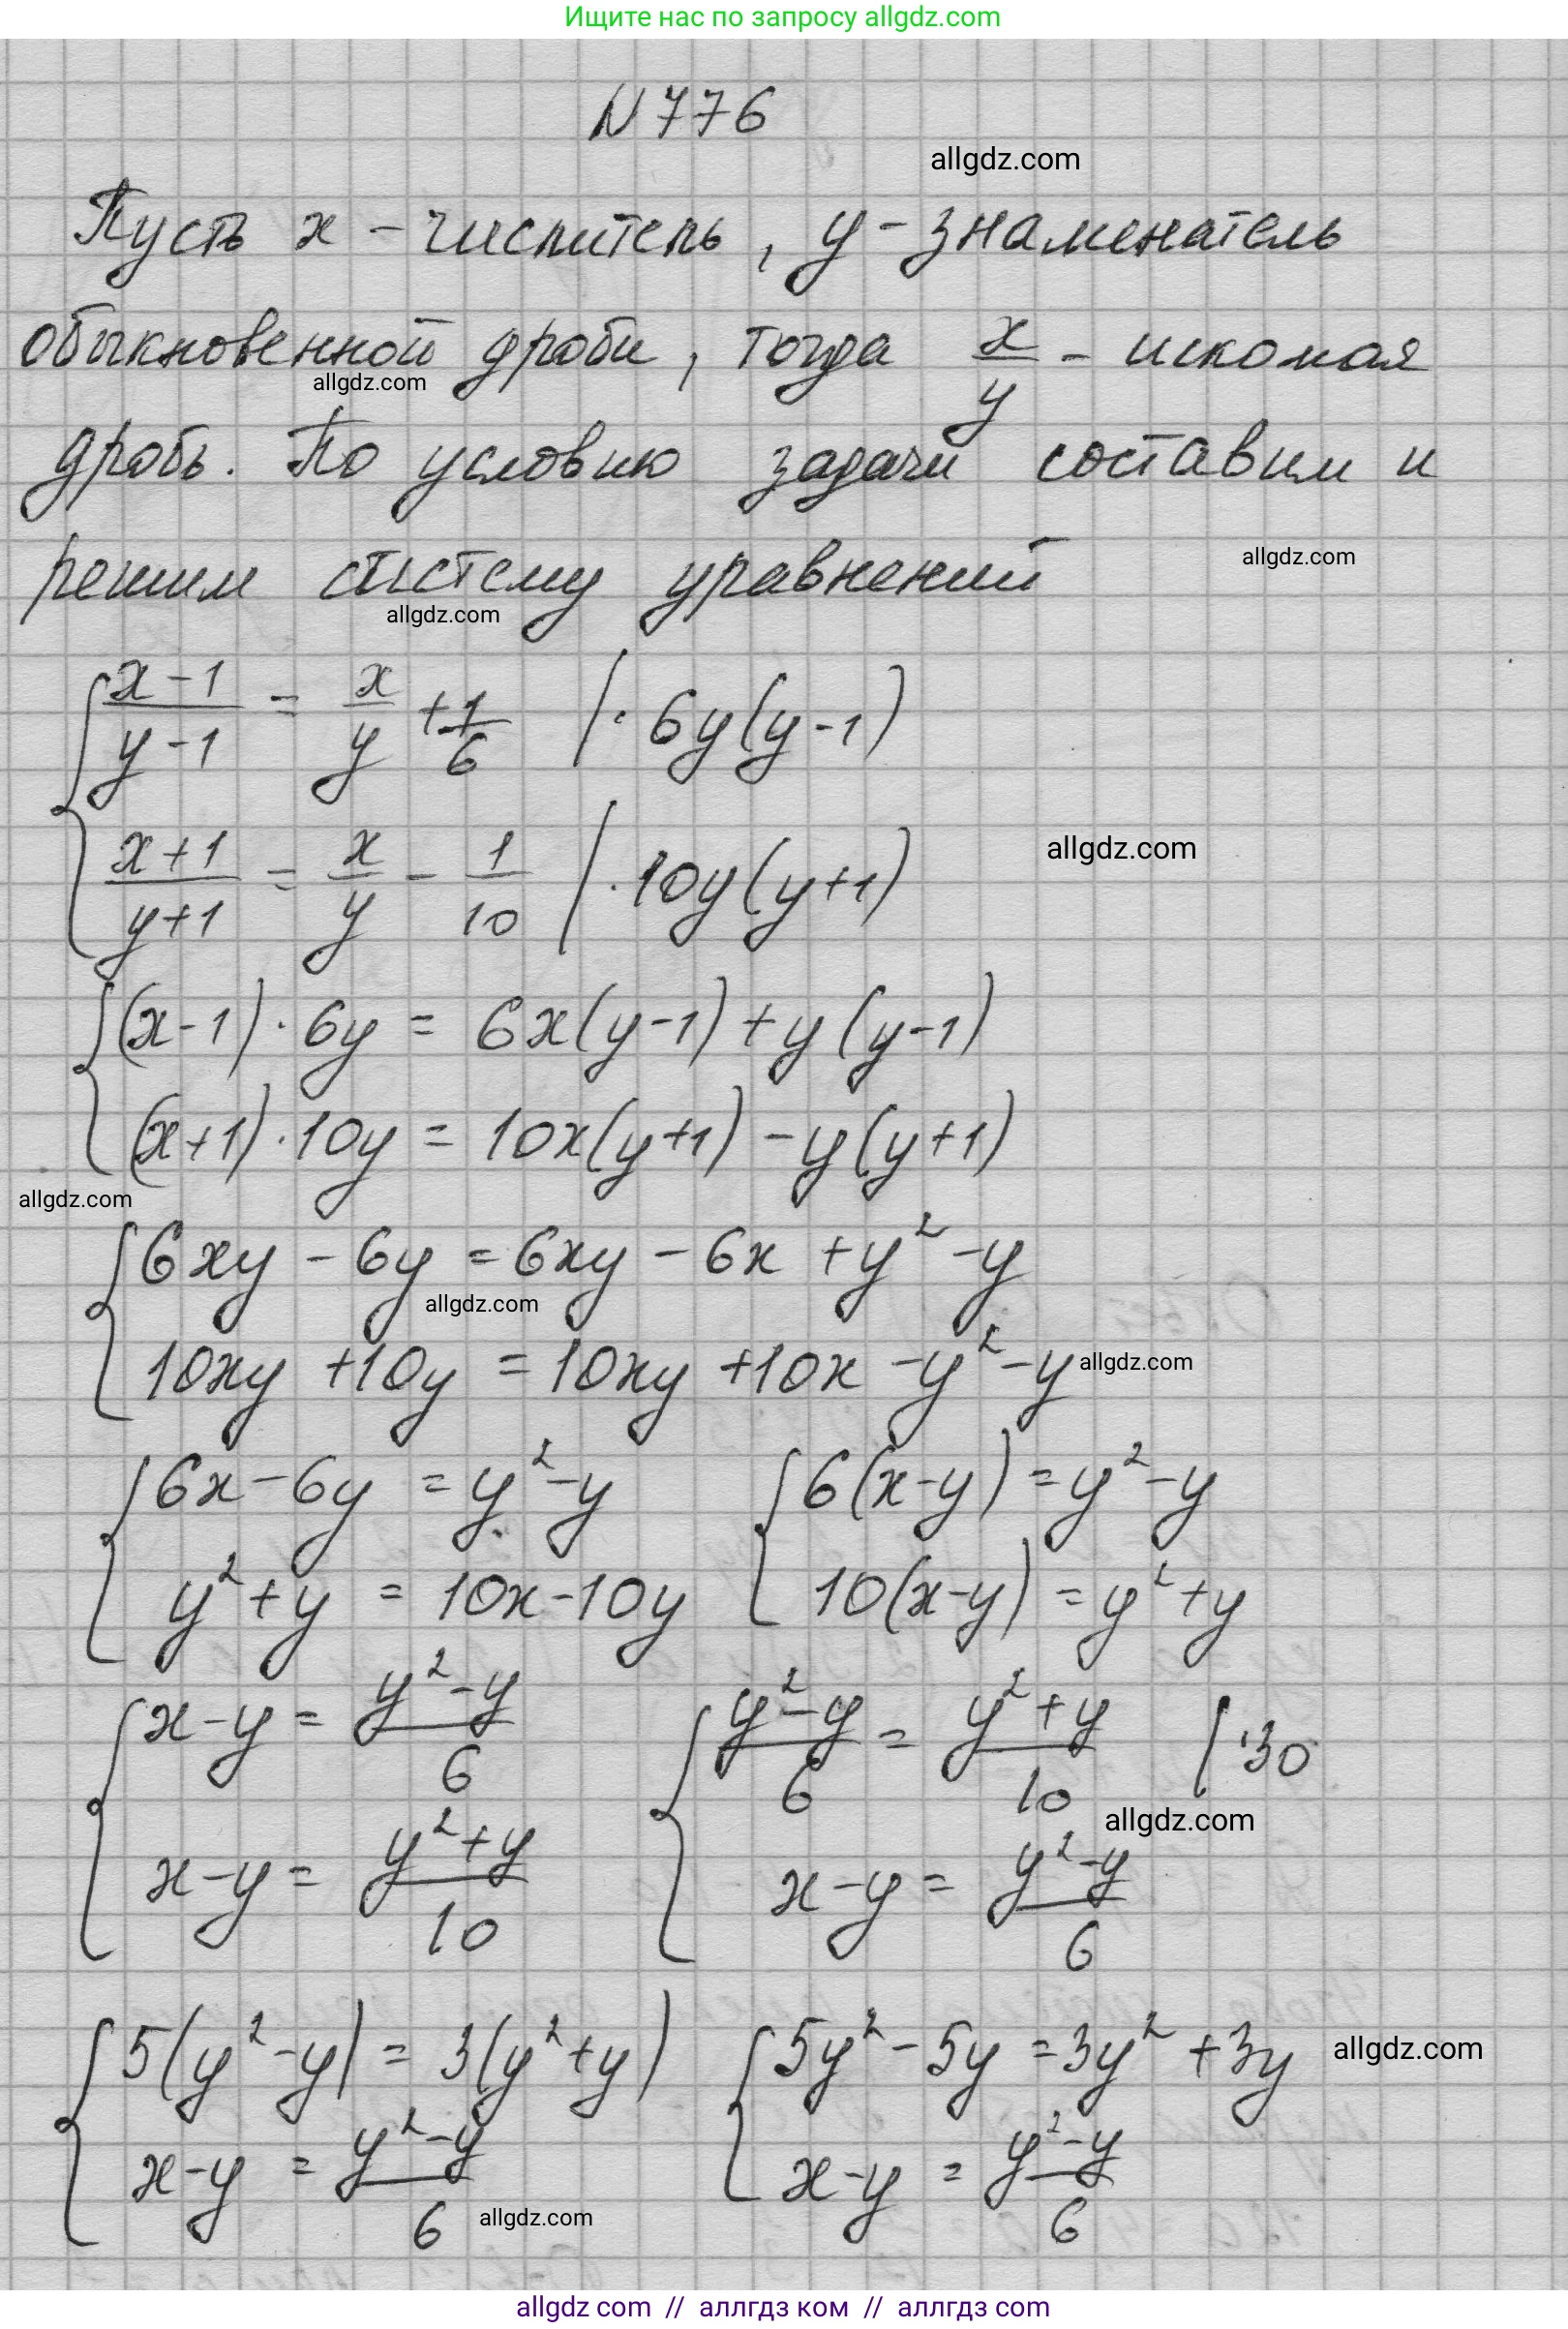 Ищите нас по запросу allgdz.com
N 776
allgdz.com
Пусть x – числитель, y – знаменатель
обыкновенной дроби, тогда x/y – искомая
allgdz.com
дробь. По условию задачи составим и
решим систему уравнений
allgdz.com
allgdz.com
{ (x-1)/(y-1) = x/y + 1/6 | · 6y(y-1)
{ (x+1)/(y+1) = x/y - 1/10 | · 10y(y+1)
allgdz.com
{ (x-1)·6y = 6x(y-1)+y(y-1)
{ (x+1)·10y = 10x(y+1)-y(y+1)
allgdz.com
{ 6xy - 6y = 6xy - 6x + y² - y
allgdz.com
{ 10xy + 10y = 10xy + 10x - y² - y
allgdz.com
{ 6x - 6y = y² - y { 6(x-y) = y² - y
{ y² + y = 10x - 10y { 10(x-y) = y² + y
{ x-y = (y²-y)/6 { (y²-y)/6 = (y²+y)/10 | ·30
allgdz.com
{ x-y = (y²+y)/10 { x-y = (y²-y)/6
{ 5(y²-y) = 3(y²+y) { 5y² - 5y = 3y² + 3y
allgdz.com
{ x-y = (y²-y)/6 { x-y = (y²-y)/6
allgdz.com
allgdz com // аллгдз ком // аллгдз com